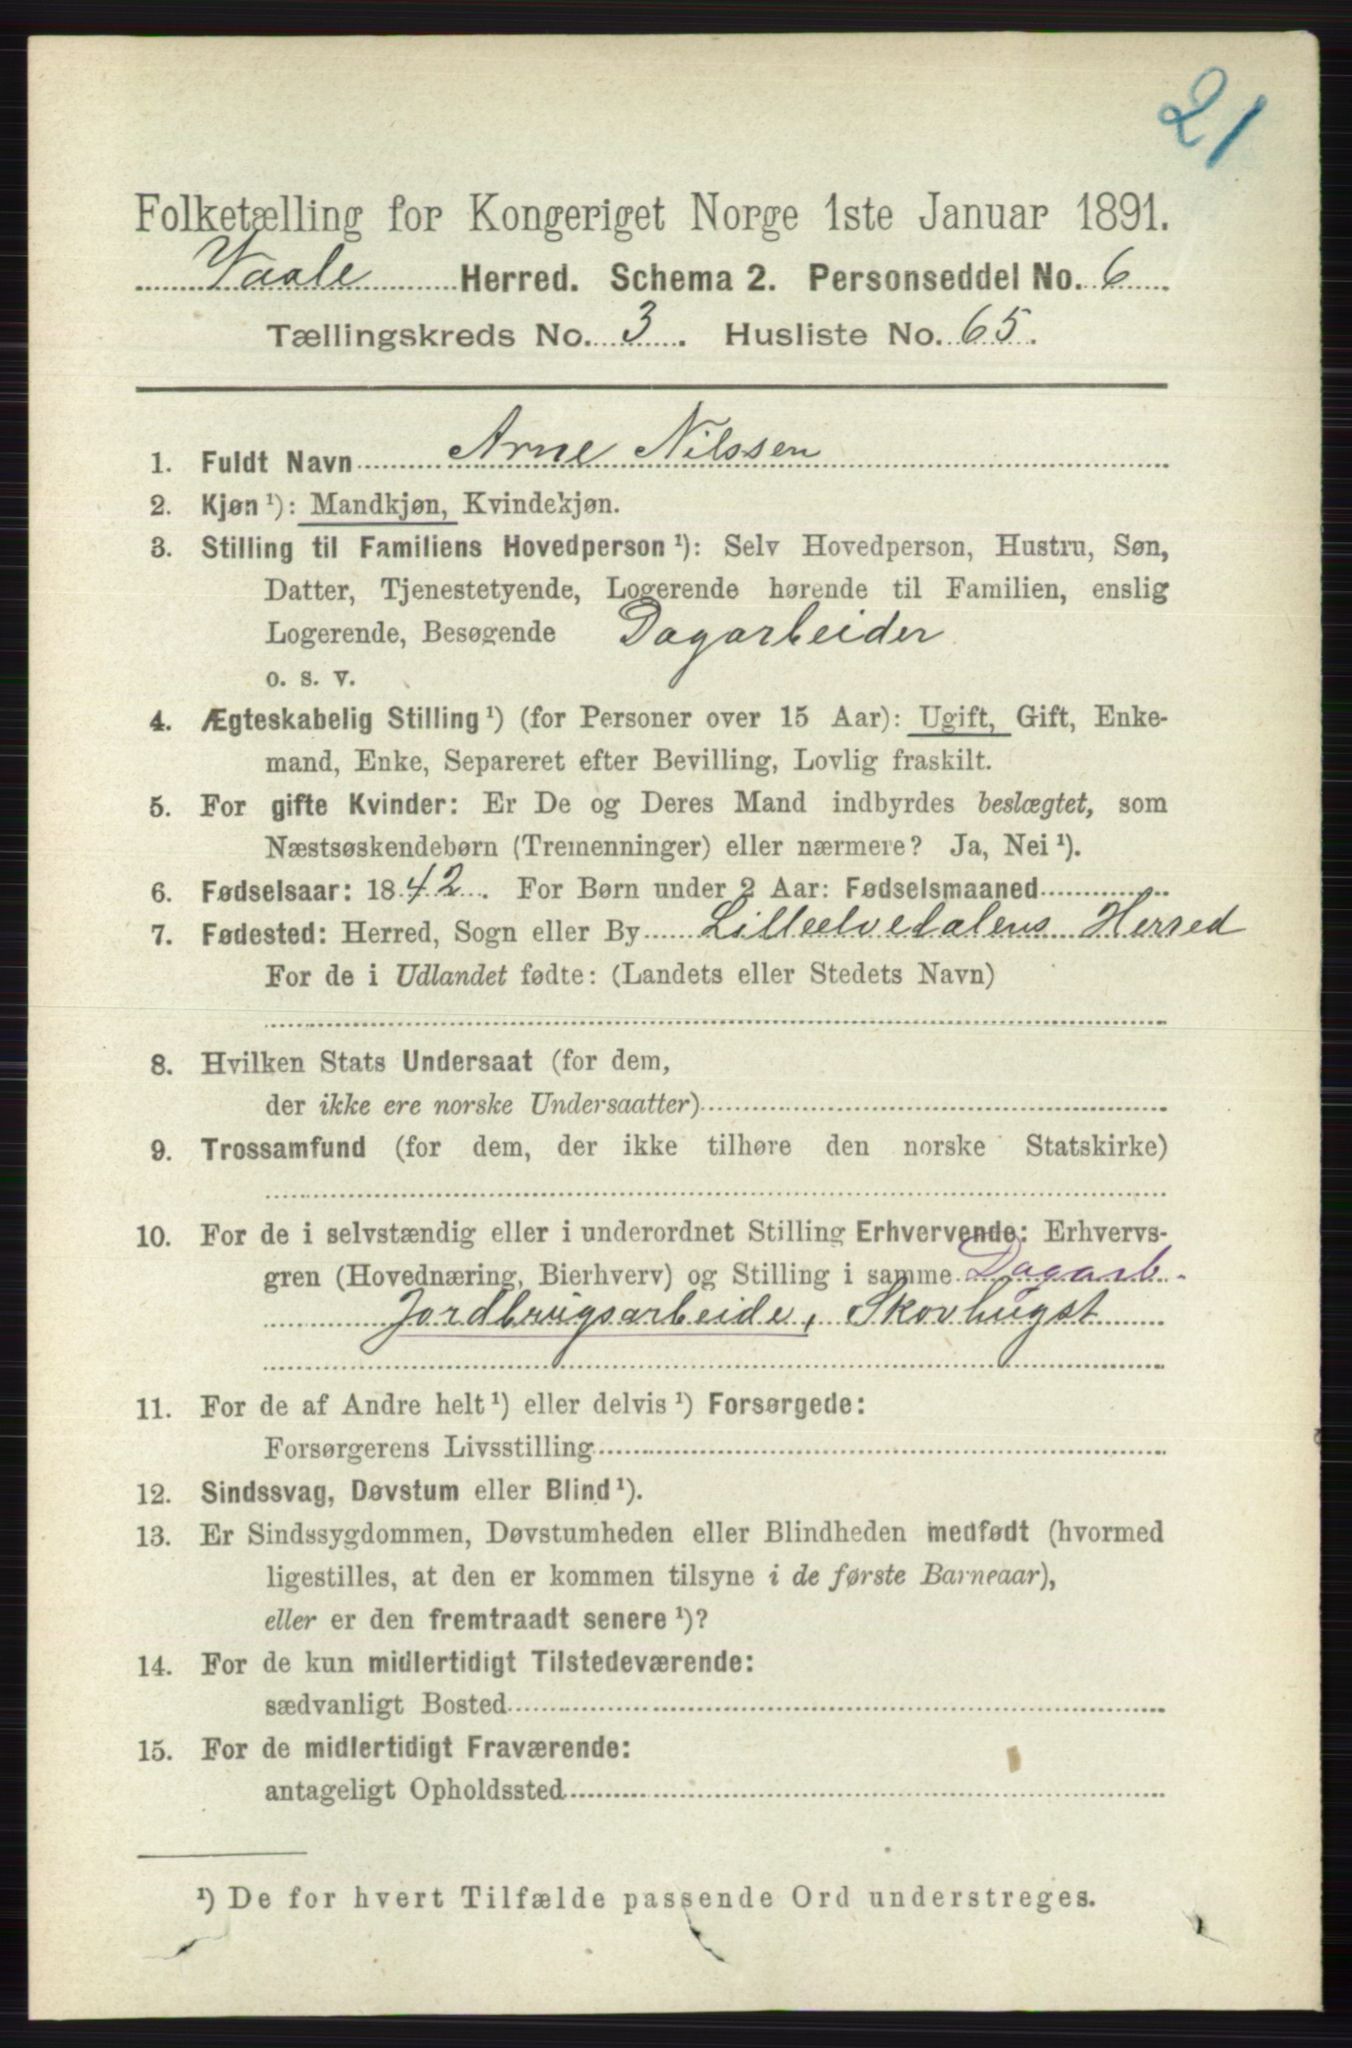 21
Folketælling for Kongeriget Norge 1ste Januar 1891.
Vaale Herred. Schema 2. Personseddel No. 6
Tællingskreds No. 3. Husliste No. 65.
1. Fuldt Navn Arne Nilssen
2. Kjøn ¹): Mandkjøn, Kvindekjøn.
3. Stilling til Familiens Hovedperson ¹): Selv Hovedperson, Hustru, Søn,
Datter, Tjenestetyende, Logerende hørende til Familien, enslig
Logerende, Besøgende Dagarbeider
o. s. v.
4. Ægteskabelig Stilling ¹) (for Personer over 15 Aar): Ugift, Gift, Enke-
mand, Enke, Separeret efter Bevilling, Lovlig fraskilt.
5. For gifte Kvinder: Er De og Deres Mand indbyrdes beslægtet, som
Næstsøskendebørn (Tremenninger) eller nærmere? Ja, Nei ¹).
6. Fødselsaar: 1842. For Børn under 2 Aar: Fødselsmaaned
7. Fødested: Herred, Sogn eller By Lilleelvedalens Herred
For de i Udlandet fødte: (Landets eller Stedets Navn)
8. Hvilken Stats Undersaat (for dem,
der ikke ere norske Undersaatter)
9. Trossamfund (for dem, der ikke tilhøre den norske Statskirke)
10. For de i selvstændig eller i underordnet Stilling Erhvervende: Erhvervs-
gren (Hovednæring, Bierhverv) og Stilling i samme Dagarb.
Jordbrugsarbeide, Skovhugst
11. For de af Andre helt ¹) eller delvis ¹) Forsørgede:
Forsørgerens Livsstilling
12. Sindssvag, Døvstum eller Blind ¹).
13. Er Sindssygdommen, Døvstumheden eller Blindheden medfødt (hvormed
ligestilles, at den er kommen tilsyne i de første Barneaar),
eller er den fremtraadt senere ¹)?
14. For de kun midlertidigt Tilstedeværende:
sædvanligt Bosted
15. For de midlertidigt Fraværende:
antageligt Opholdssted
¹) De for hvert Tilfælde passende Ord understreges.